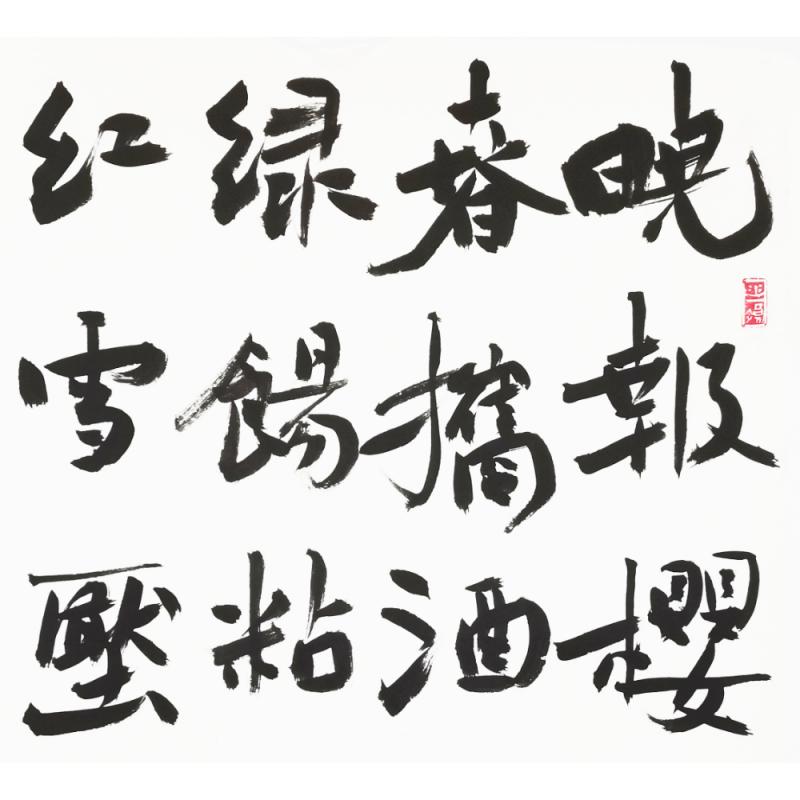 晓報櫻
春攜酒
绿餳粘
红雪壓